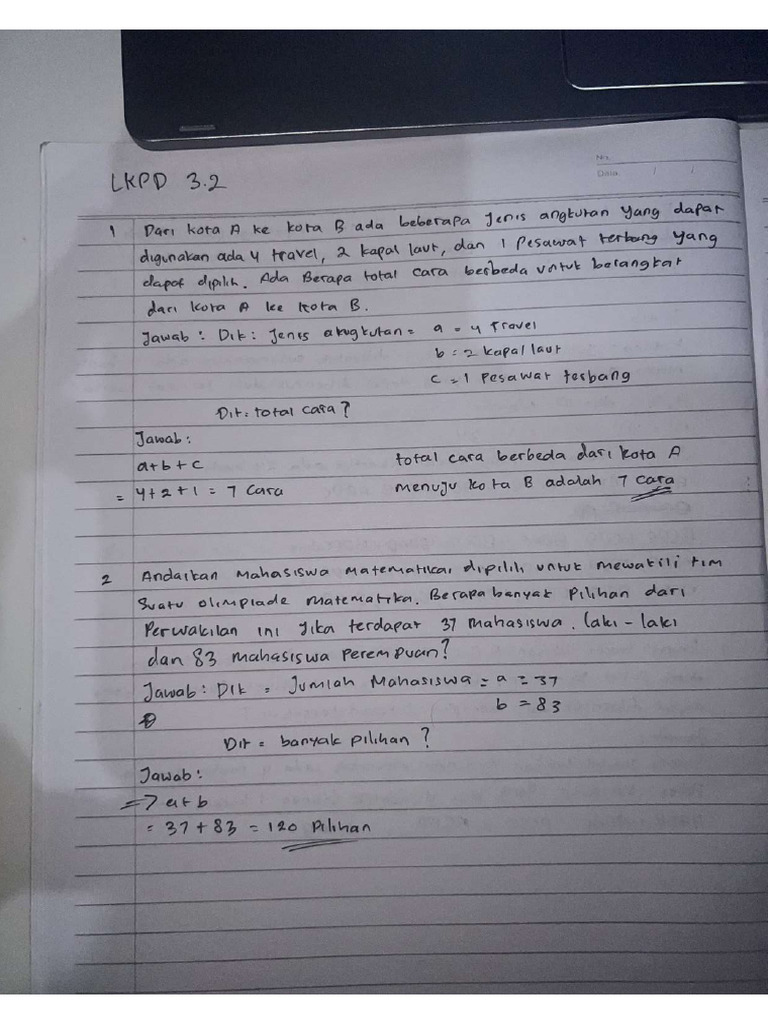 No.
Date / /
LKPD 3.2
1 Dari kota A ke kota B ada beberapa jenis angkutan yang dapat
digunakan ada 4 travel, 2 kapal laut, dan 1 Pesawat terbang yang
dapat dipilih. Ada Berapa total cara berbeda untuk berangkat
dari kota A ke kota B.
Jawab : Dik : Jenis angkutan = a = 4 Travel
b = 2 kapal laut
c = 1 Pesawat terbang
Dit = total cara ?
Jawab :
a+b+c
= 4+2+1 = 7 Cara
total cara berbeda dari kota A
menuju kota B adalah 7 cara
2 Andaikan Mahasiswa Matematika dipilih untuk mewakili tim
Suatu olimpiade matematika. Berapa banyak Pilihan dari
Perwakilan ini Jika terdapat 37 mahasiswa. laki-laki
dan 83 mahasiswa perempuan?
Jawab : Dik = Jumlah Mahasiswa = a = 37
b = 83
Dit = banyak pilihan ?
Jawab :
=> a+b
= 37 + 83 = 120 Pilihan